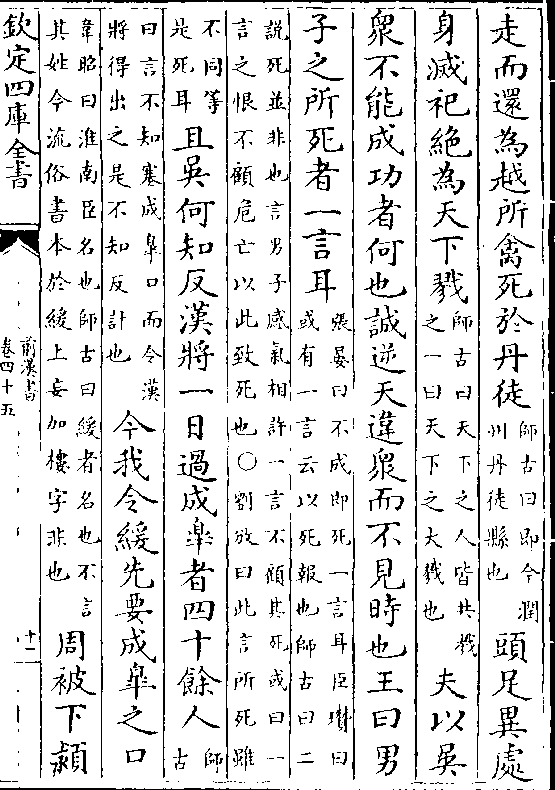 走而還為越所禽死於丹徒師古曰即今潤州丹徒縣也頭足異處
身滅祀絶為天下戮師古曰天下之人皆共戮之一曰天下之大戮也夫以吳
衆不能成功者何也誠逆天違衆而不見時也王曰男
子之所死者一言耳張晏曰不成即死一言耳臣瓚曰或有一言云以死報也師古曰二
說死並非也言男子感氣相許一言不顧其死或曰一言之恨不顧危亡以此致死也○劉攽曰此言所死雖
不同等是死耳且吳何知反漢將一日過成臯者四十餘人師古
曰言不知塞成臯口而令漢將得出之是不知反計也今我令緩先要成臯之口
韋昭曰淮南臣名也師古曰緩者名也不言其姓今流俗書本於緩上妄加樓字非也周被下潁
欽定四庫全書
前漢書
卷四十五
十二